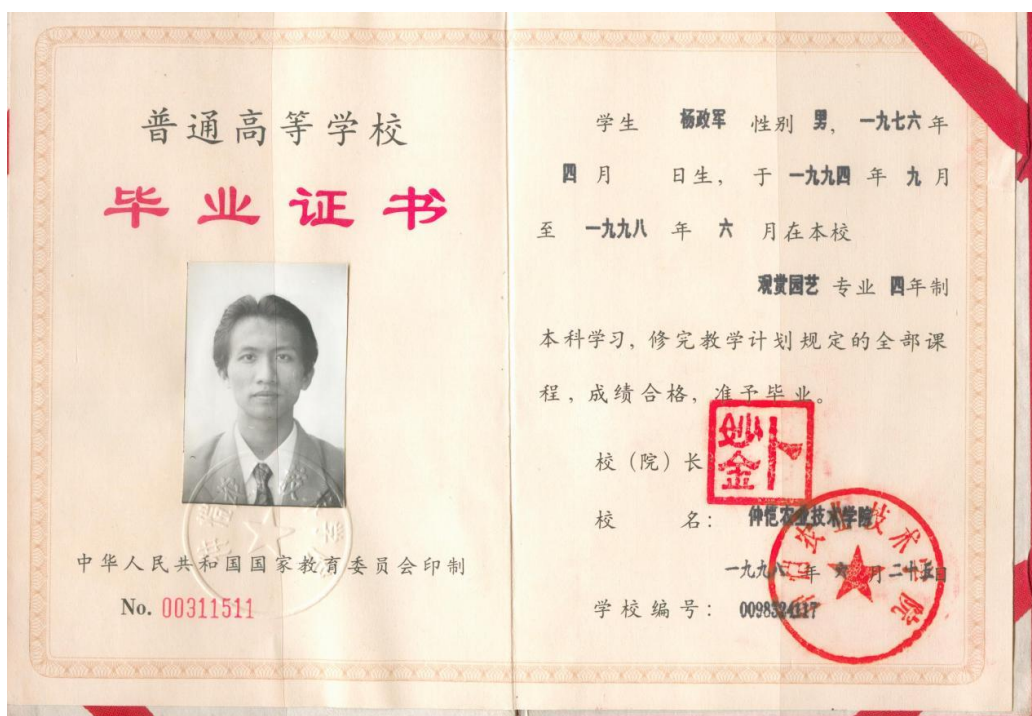 普通高等学校
毕业证书
中华人民共和国国家教育委员会印制
No. 00311511
学生 杨政军 性别 男，一九七六年
四月 日生，于 一九九四 年 九 月
至 一九九八 年 六 月在本校
观赏园艺 专业 四年制
本科学习，修完教学计划规定的全部课
程，成绩合格，准予毕业。
校（院）长
卜妙金
校 名： 仲恺农业技术学院
一九九八 年 六 月二十五日
学校编号： 0098324117
仲恺农业技术学院